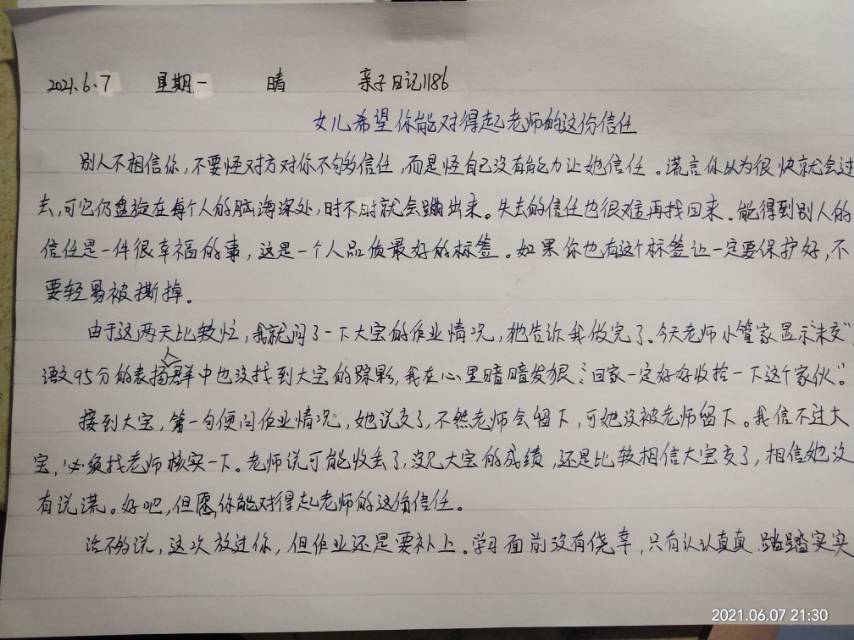 2021.6.7 星期一 晴 亲子日记1186
女儿希望你能对得起老师的这份信任
别人不相信你,不要怪对方对你不够信任,而是怪自己没有能力让她信任。谎言你以为很快就会过
去,可它仍盘旋在每个人的脑海深处,时不时就会蹦出来。失去的信任也很难再找回来。能得到别人的
信任是一件很幸福的事,这是一个人品质最好的标签。如果你也有这个标签让一定要保护好,不
要轻易被撕掉。
由于这两天比较忙,我就问了一下大宝的作业情况,她告诉我做完了。今天老师小管家显示"未交",
语文95分的表扬人群中也没找到大宝的踪影,我在心里暗暗发狠:"回家一定好好收拾一下这个家伙。"
接到大宝,第一句便问作业情况,她说交了,不然老师会留下,可她没被老师留下。我信不过大
宝,必须找老师核实一下。老师说可能收丢了,没见大宝的成绩,还是比较相信大宝交了,相信她没
有说谎。好吧,但愿你能对得起老师的这份信任。
话不多说,这次放过你,但作业还是要补上。学习面前没有侥幸,只有认认真真、踏踏实实
2021.06.07 21:30